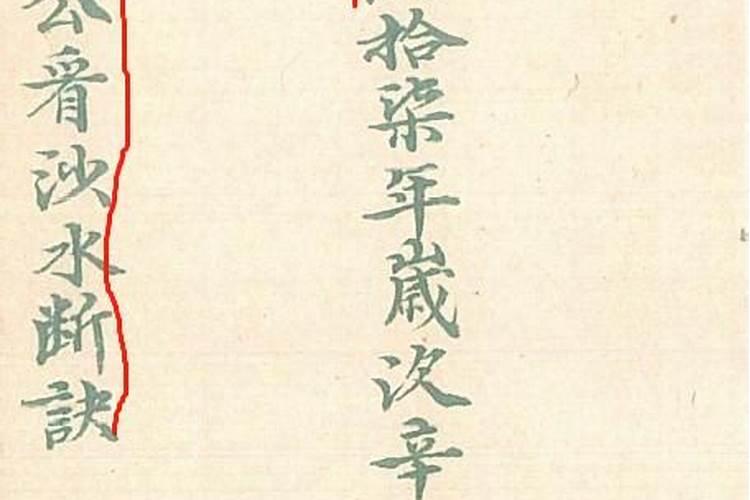 拾柒年歲次辛
公看沙水断訣